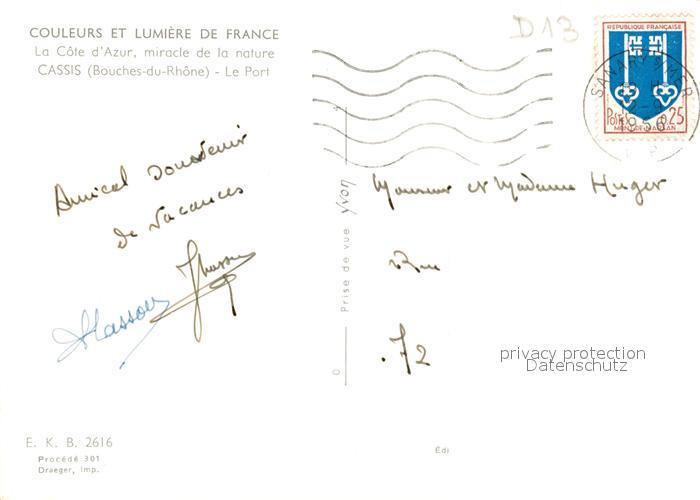 COULEURS ET LUMIÈRE DE FRANCE
La Côte d'Azur, miracle de la nature
CASSIS (Bouches-du-Rhône) - Le Port
D13
RÉPUBLIQUE FRANÇAISE
POSTES 0,25
MONT-DE-MARSAN
SANARY S MER
Amical Souvenir
de vacances
Masson
Prise de vue yvon
Monsieur et Madame Huger
Rue
72
privacy protection
Datenschutz
E. K. B. 2616
Procédé 301
Draeger, Imp.
Édi